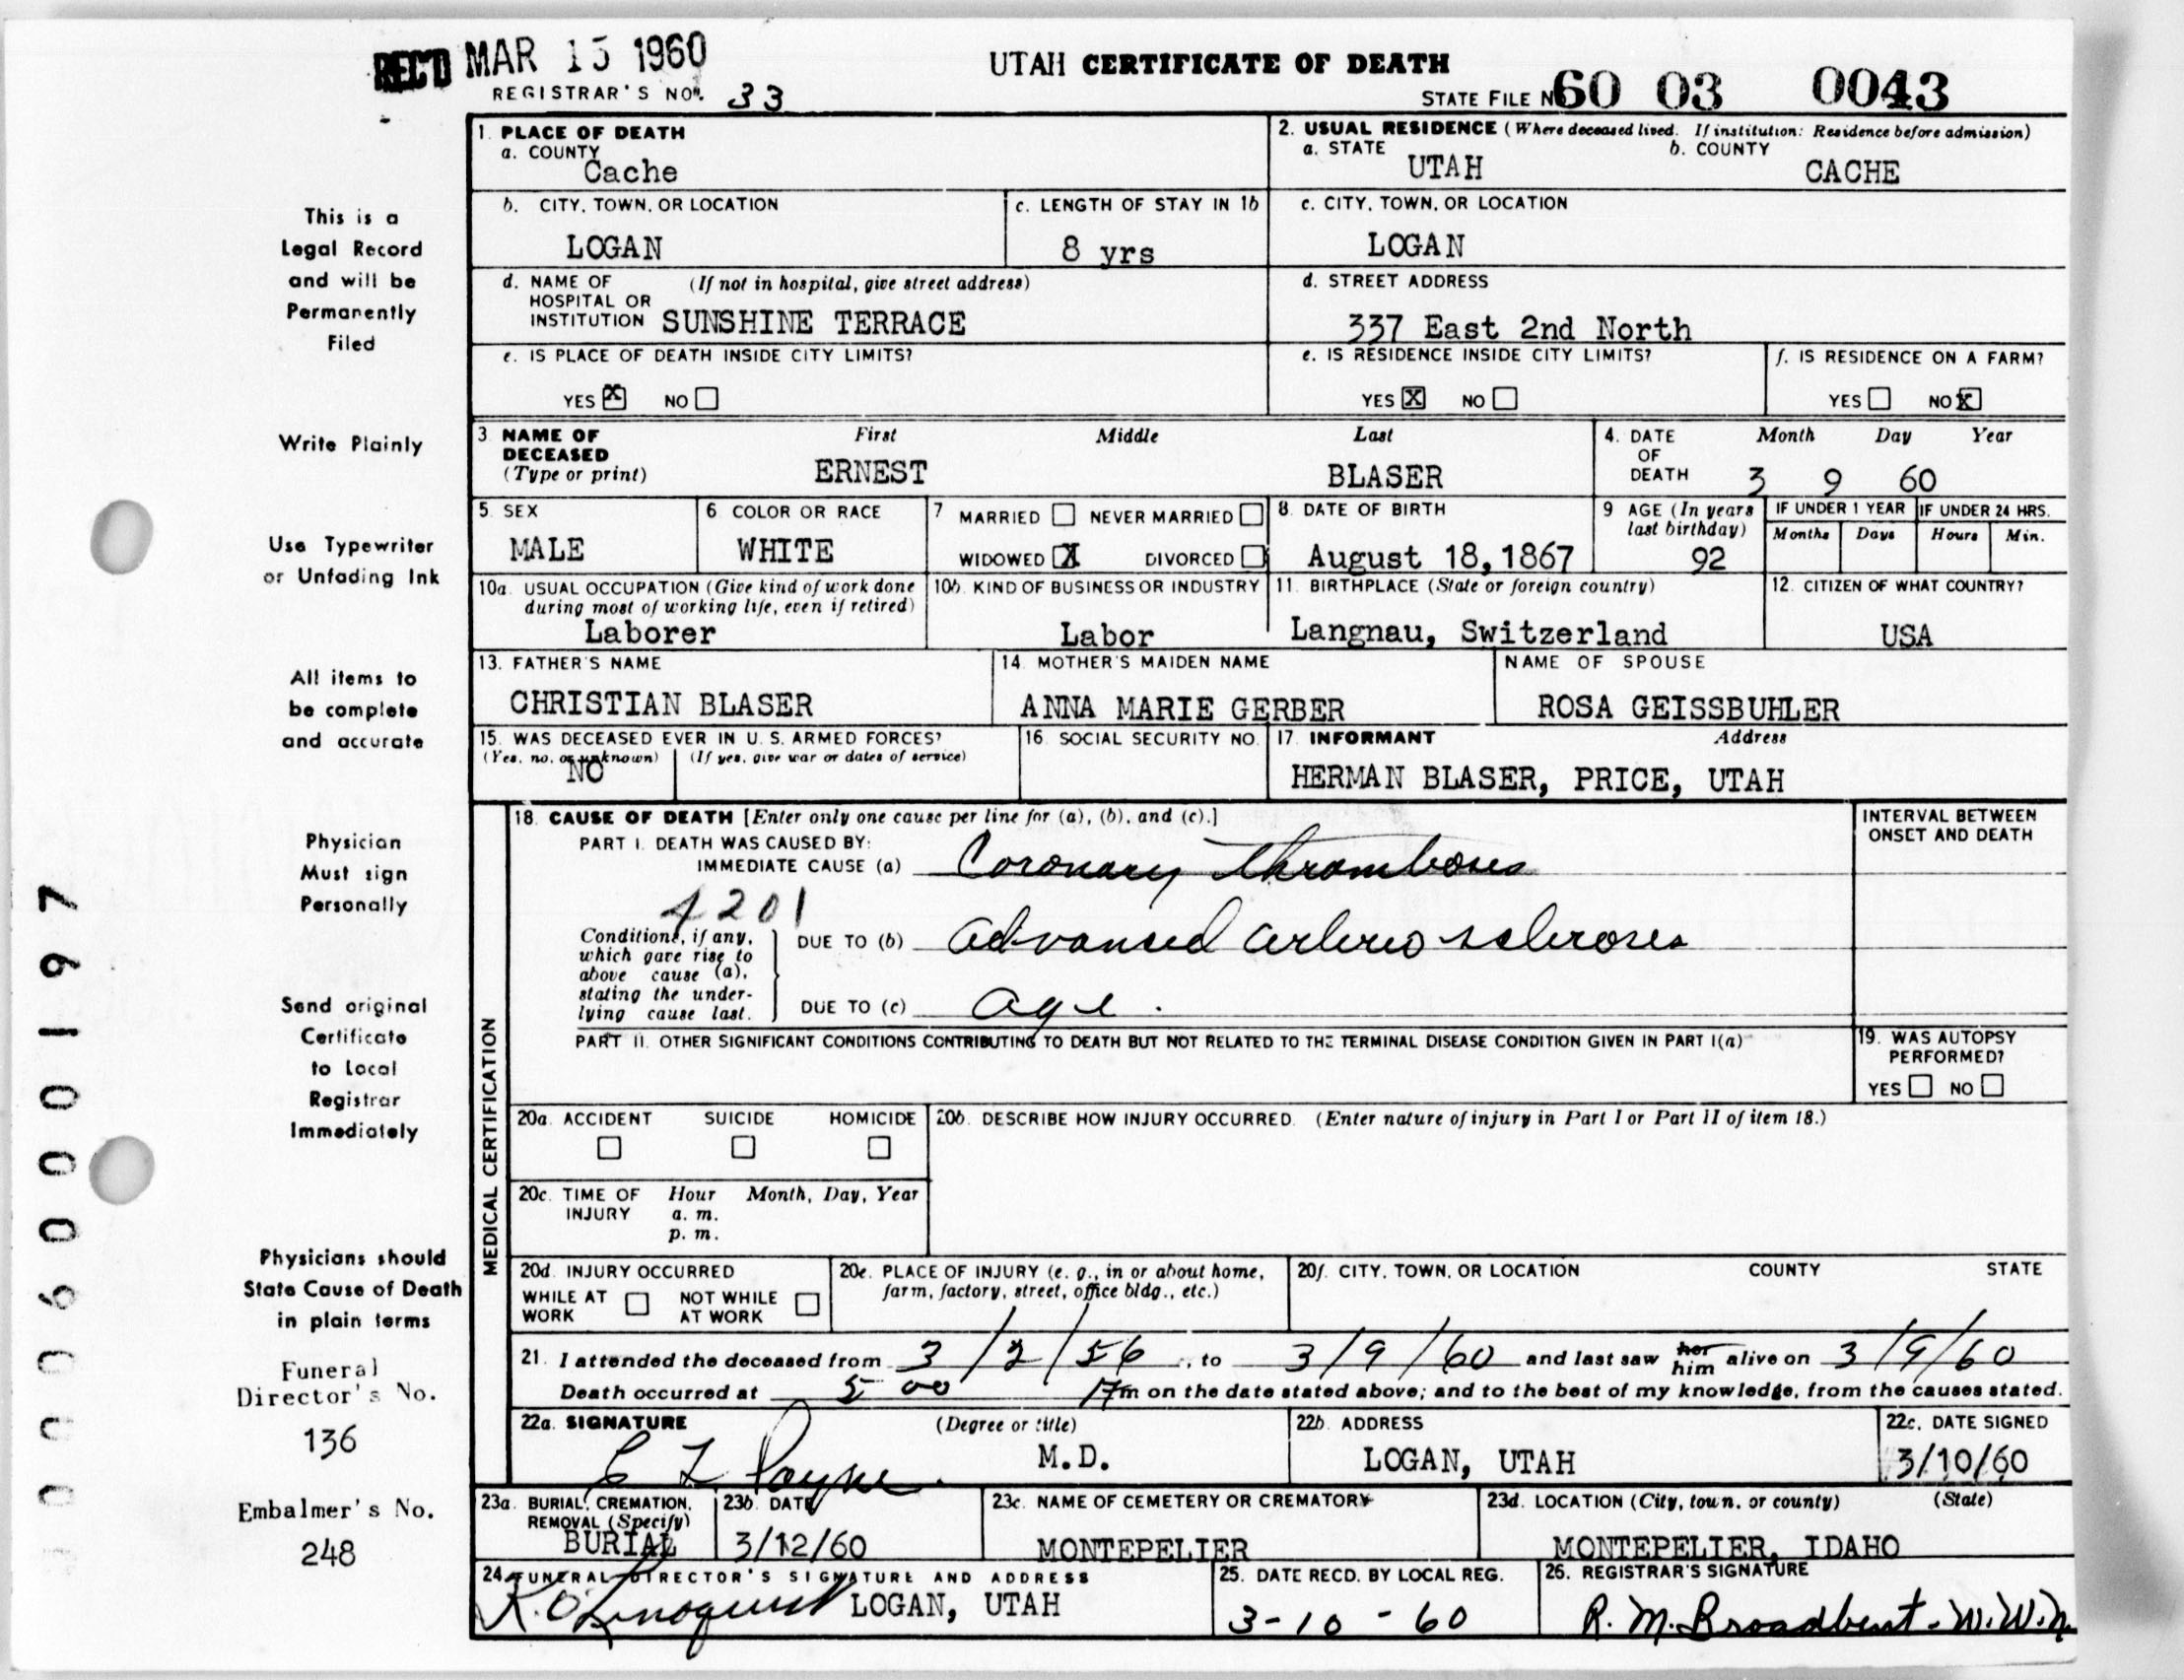 REC'D MAR 15 1960
UTAH CERTIFICATE OF DEATH
REGISTRAR'S NO. 33
STATE FILE N 60 03 0043
1. PLACE OF DEATH
a. COUNTY
Cache
2. USUAL RESIDENCE (Where deceased lived. If institution: Residence before admission)
a. STATE b. COUNTY
UTAH CACHE
b. CITY, TOWN, OR LOCATION
LOGAN
c. LENGTH OF STAY IN 1b
8 yrs
c. CITY, TOWN, OR LOCATION
LOGAN
d. NAME OF HOSPITAL OR INSTITUTION (If not in hospital, give street address)
SUNSHINE TERRACE
d. STREET ADDRESS
337 East 2nd North
e. IS PLACE OF DEATH INSIDE CITY LIMITS?
YES X NO
e. IS RESIDENCE INSIDE CITY LIMITS?
YES X NO
f. IS RESIDENCE ON A FARM?
YES NO X
3. NAME OF DECEASED (Type or print)
First Middle Last
ERNEST BLASER
4. DATE OF DEATH
Month Day Year
3 9 60
5. SEX
MALE
6. COLOR OR RACE
WHITE
7. MARRIED NEVER MARRIED
WIDOWED X DIVORCED
8. DATE OF BIRTH
August 18, 1867
9. AGE (In years last birthday)
92
IF UNDER 1 YEAR
Months Days
IF UNDER 24 HRS.
Hours Min.
10a. USUAL OCCUPATION (Give kind of work done during most of working life, even if retired)
Laborer
10b. KIND OF BUSINESS OR INDUSTRY
Labor
11. BIRTHPLACE (State or foreign country)
Langnau, Switzerland
12. CITIZEN OF WHAT COUNTRY?
USA
13. FATHER'S NAME
CHRISTIAN BLASER
14. MOTHER'S MAIDEN NAME
ANNA MARIE GERBER
NAME OF SPOUSE
ROSA GEISSBUHLER
15. WAS DECEASED EVER IN U. S. ARMED FORCES?
(Yes, no, or unknown) (If yes, give war or dates of service)
NO
16. SOCIAL SECURITY NO.
17. INFORMANT Address
HERMAN BLASER, PRICE, UTAH
MEDICAL CERTIFICATION
18. CAUSE OF DEATH [Enter only one cause per line for (a), (b), and (c).]
INTERVAL BETWEEN ONSET AND DEATH
PART I. DEATH WAS CAUSED BY:
IMMEDIATE CAUSE (a) Coronary thrombosis
4201
Conditions, if any, which gave rise to above cause (a), stating the underlying cause last.
DUE TO (b) Advanced arterio sclerosis
DUE TO (c) age.
PART II. OTHER SIGNIFICANT CONDITIONS CONTRIBUTING TO DEATH BUT NOT RELATED TO THE TERMINAL DISEASE CONDITION GIVEN IN PART I(a)
19. WAS AUTOPSY PERFORMED?
YES NO
20a. ACCIDENT SUICIDE HOMICIDE
20b. DESCRIBE HOW INJURY OCCURRED. (Enter nature of injury in Part I or Part II of item 18.)
20c. TIME OF INJURY Hour Month, Day, Year
a. m.
p. m.
20d. INJURY OCCURRED
WHILE AT WORK NOT WHILE AT WORK
20e. PLACE OF INJURY (e. g., in or about home, farm, factory, street, office bldg., etc.)
20f. CITY, TOWN, OR LOCATION COUNTY STATE
21. I attended the deceased from 3/2/56, to 3/9/60 and last saw her him alive on 3/9/60
Death occurred at 5 00 m on the date stated above; and to the best of my knowledge, from the causes stated.
22a. SIGNATURE (Degree or title)
C L Payne M.D.
22b. ADDRESS
LOGAN, UTAH
22c. DATE SIGNED
3/10/60
23a. BURIAL, CREMATION, REMOVAL (Specify)
BURIAL
23b. DATE
3/12/60
23c. NAME OF CEMETERY OR CREMATORY
MONTEPELIER
23d. LOCATION (City, town, or county) (State)
MONTEPELIER, IDAHO
24. FUNERAL DIRECTOR'S SIGNATURE AND ADDRESS
K. O. Lindquist LOGAN, UTAH
25. DATE RECD. BY LOCAL REG.
3-10-60
26. REGISTRAR'S SIGNATURE
R. M. Broadbent - W.W.N.
This is a
Legal Record
and will be
Permanently
Filed
Write Plainly
Use Typewriter
or Unfading Ink
All items to
be complete
and accurate
Physician
Must sign
Personally
Send original
Certificate
to Local
Registrar
Immediately
Physicians should
State Cause of Death
in plain terms
Funeral
Director's No.
136
Embalmer's No.
248
000600197